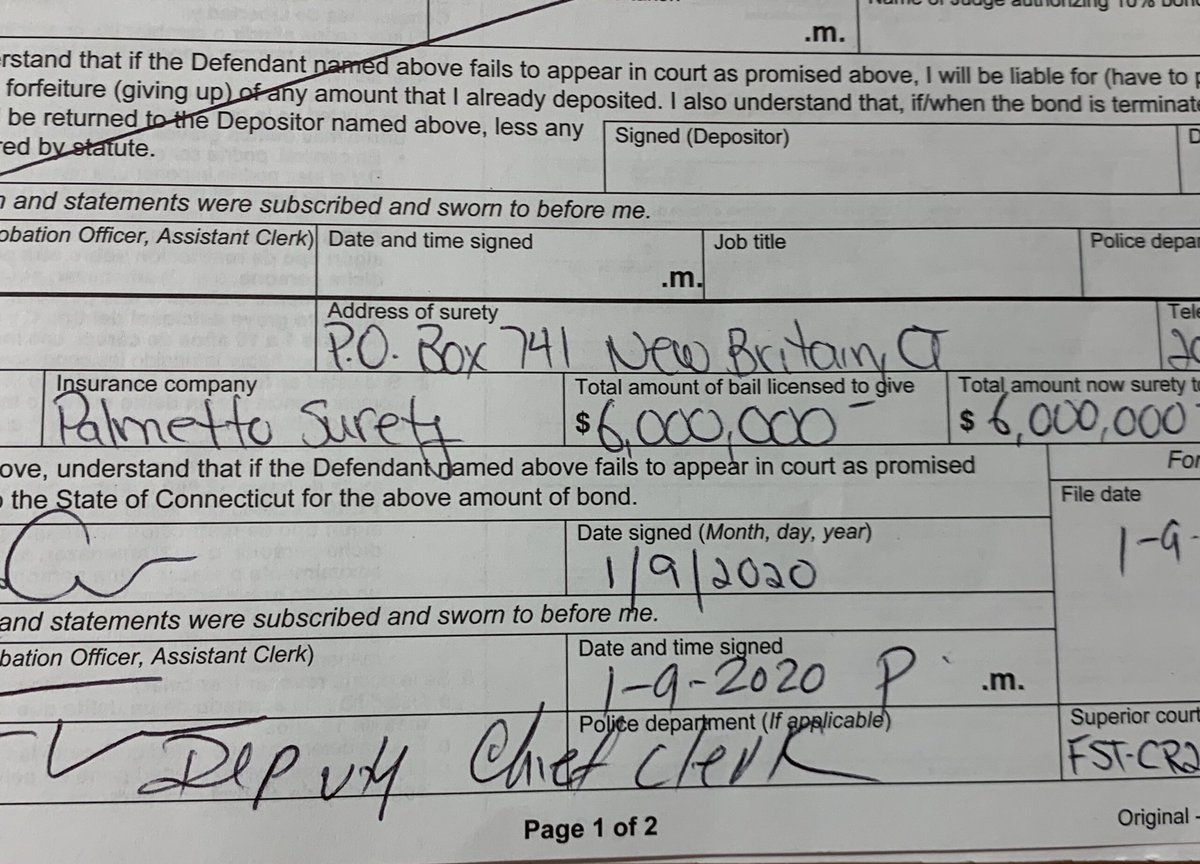 Name of Judge authorizing 10% bond
.m.
rstand that if the Defendant named above fails to appear in court as promised above, I will be liable for (have to
forfeiture (giving up) of any amount that I already deposited. I also understand that, if/when the bond is terminate
be returned to the Depositor named above, less any
red by statute.
Signed (Depositor)
D
and statements were subscribed and sworn to before me.
obation Officer, Assistant Clerk)
Date and time signed
.m.
Job title
Police depar
Address of surety
P.O. Box 741 New Britain, CT
Tele
20
Insurance company
Palmetto Surety
Total amount of bail licensed to give
$ 6,000,000 -
Total amount now surety to
$ 6,000,000 -
ove, understand that if the Defendant named above fails to appear in court as promised
the State of Connecticut for the above amount of bond.
For
File date
1-9-
Date signed (Month, day, year)
1/9/2020
and statements were subscribed and sworn to before me.
bation Officer, Assistant Clerk)
Date and time signed
1-9-2020 P .m.
Deputy Chief Clerk
Police department (If applicable)
Superior court
FST-CR2
Page 1 of 2
Original -